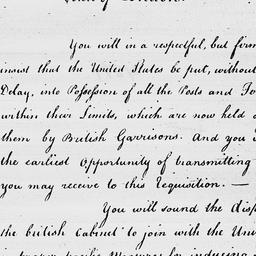 You will in a respectful, but firm
insist that the United States be put, without
Delay, into Possession of all the Posts and
within their Limits, which are now held
them by British Garrisons. And you
the earliest Opportunity of transmitting
you may receive to this Requisition. —
You will sound the
the british Cabinet to join with the